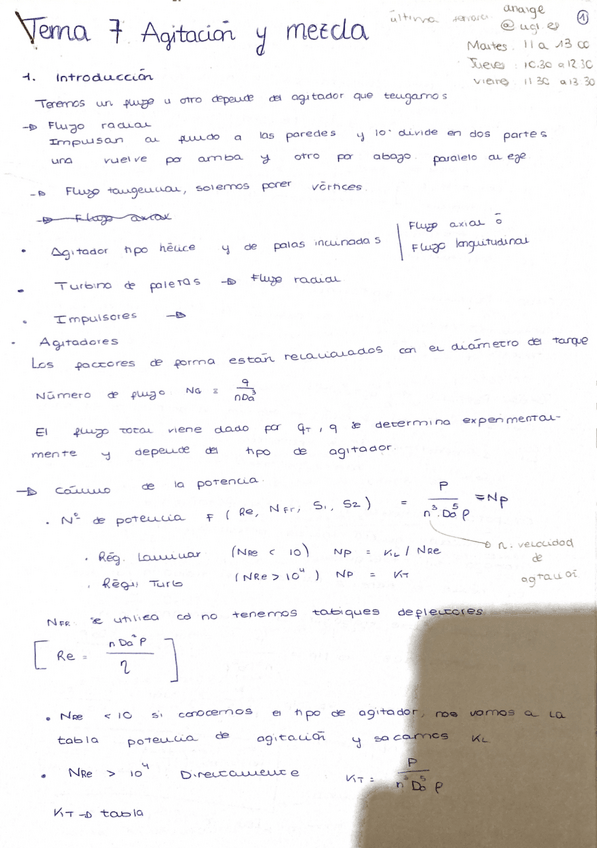 Tema 7 Agitación y mezcla
última
anaige
@ugr.es
1
Martes: 11 a 13 00
Jueves: 10.30 a 12 30
viernes: 11 30 a 13.30
1. Introducción
Tenemos un flujo u otro depende del agitador que tengamos
→ Flujo radial
Impulsan al fluido a las paredes y lo divide en dos partes
una vuelve por arriba y otro por abajo. paralelo al eje
→ Flujo tangencial, solemos poner vórtices.
→ Flujo axial
• Agitador tipo hélice y de palas inclinadas | Flujo axial o
Flujo longitudinal
• Turbina de paletas → Flujo radial
• Impulsores →
• Agitadores
Los factores de forma están relacionados con el diámetro del tanque
Número de flujo NQ = q / nDa³
El flujo total viene dado por qT, q se determina experimental-
mente y depende del tipo de agitador.
→ Cálculo de la potencia.
• Nº de potencia F (Re, NFr, S1, S2) = P / n³·Da⁵ρ = Np
→ n. velocidad
de
agitación
• Rég. Laminar (NRe < 10) NP = KL / NRe
• Régi Turb (NRe > 10⁴) NP = KT
NFR se utiliza cd no tenemos tabiques deflectores.
[ Re = nDa²ρ / η ]
• NRe < 10 si conocemos el tipo de agitador, nos vamos a la
tabla potencia de agitación y sacamos KL
• NRe > 10⁴ Directamente KT = P / n³Da⁵ρ
KT → tabla